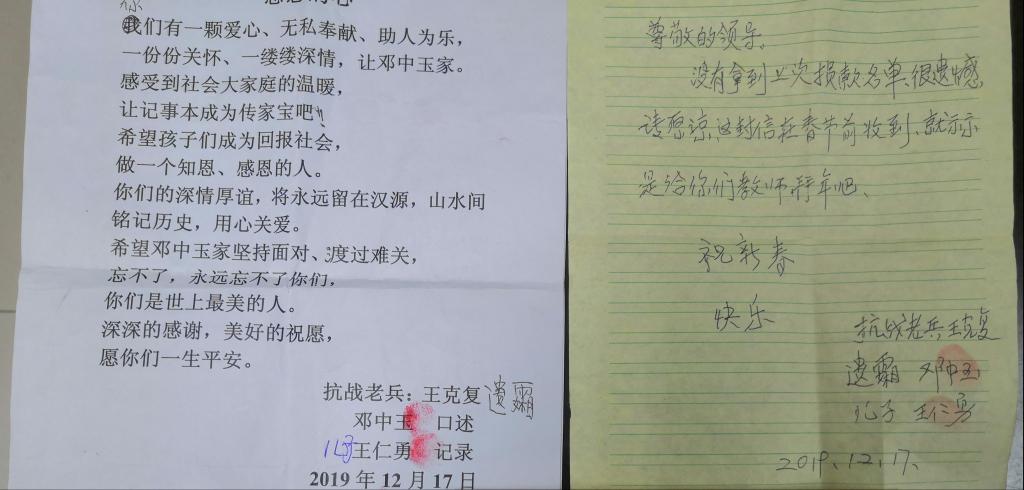 你
我们有一颗爱心、无私奉献、助人为乐，
一份份关怀、一缕缕深情，让邓中玉家。
感受到社会大家庭的温暖，
让记事本成为传家宝吧
希望孩子们成为回报社会，
做一个知恩、感恩的人。
你们的深情厚谊，将永远留在汉源，山水间
铭记历史，用心关爱。
希望邓中玉家坚持面对、度过难关，
忘不了，永远忘不了你们，
你们是世上最美的人。
深深的感谢，美好的祝愿，
愿你们一生平安。
抗战老兵：王克复遗孀
邓中玉 口述
儿子王仁勇 记录
2019 年 12 月 17 日
尊敬的领导、
没有拿到上次捐款名单、很遗憾
请愿谅、这封信在春节前收到、就示示
是给你们教师拜年吧、
祝新春
快乐
抗战老兵王克复
遗霜 邓中玉
儿子 王仁勇
2019.12.17、